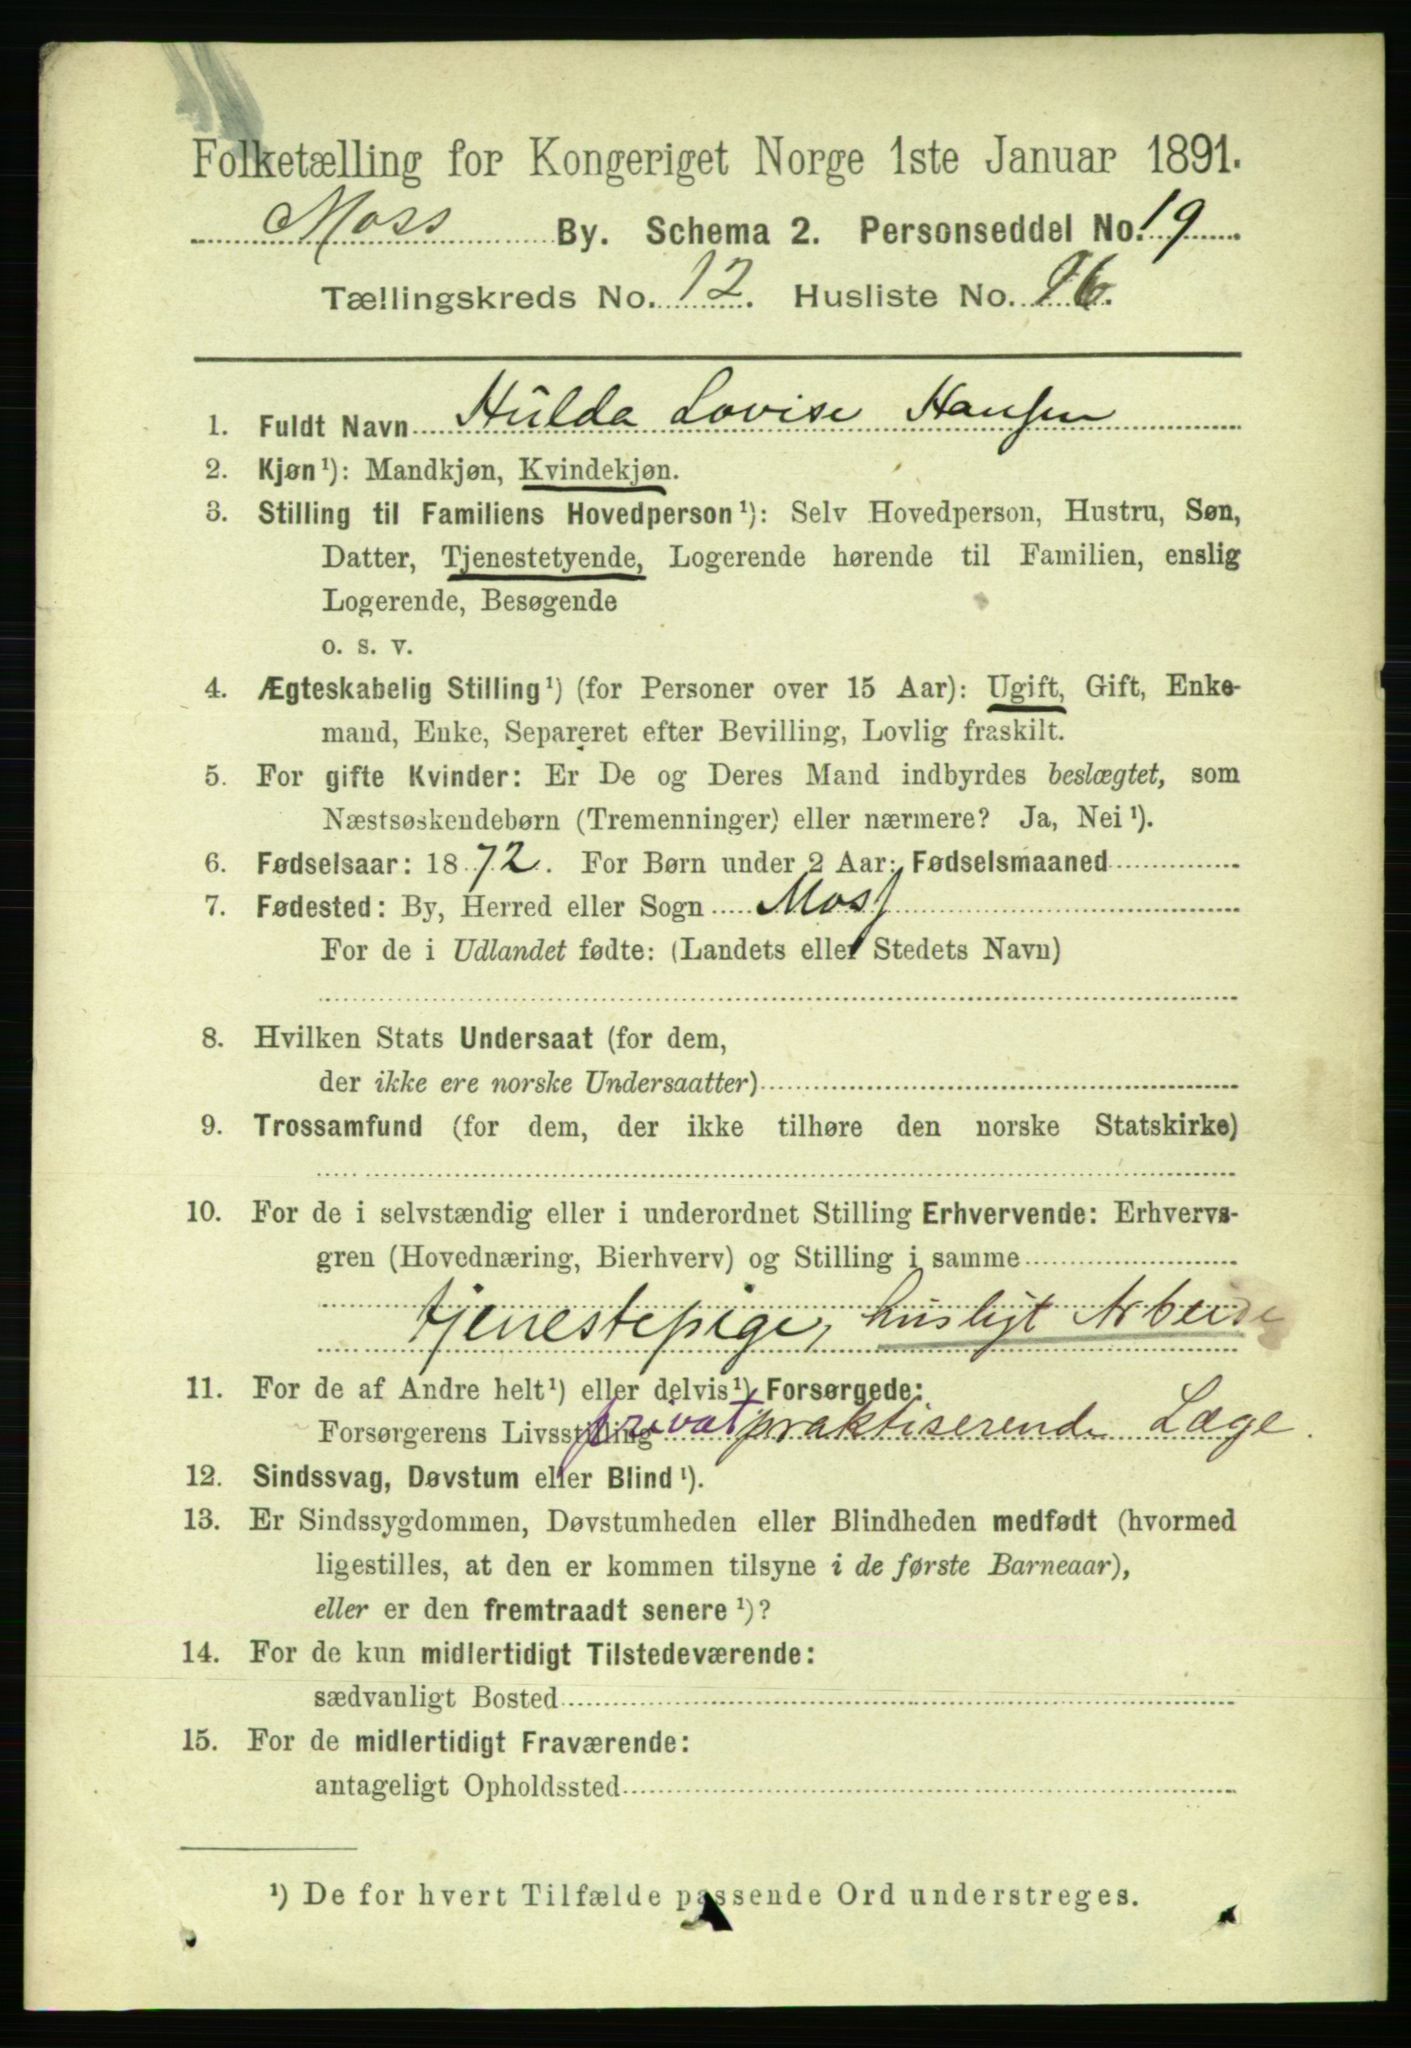 Folketælling for Kongeriget Norge 1ste Januar 1891.
Moss By. Schema 2. Personseddel No. 19
Tællingskreds No. 12. Husliste No. 96.
1. Fuldt Navn Hulda Lovise Hansen
2. Kjøn¹): Mandkjøn, Kvindekjøn.
3. Stilling til Familiens Hovedperson¹): Selv Hovedperson, Hustru, Søn,
Datter, Tjenestetyende, Logerende hørende til Familien, enslig
Logerende, Besøgende
o. s. v.
4. Ægteskabelig Stilling¹) (for Personer over 15 Aar): Ugift, Gift, Enke-
mand, Enke, Separeret efter Bevilling, Lovlig fraskilt.
5. For gifte Kvinder: Er De og Deres Mand indbyrdes beslægtet, som
Næstsøskendebørn (Tremenninger) eller nærmere? Ja, Nei¹).
6. Fødselsaar: 1872. For Børn under 2 Aar: Fødselsmaaned
7. Fødested: By, Herred eller Sogn Moss
For de i Udlandet fødte: (Landets eller Stedets Navn)
8. Hvilken Stats Undersaat (for dem,
der ikke ere norske Undersaatter)
9. Trossamfund (for dem, der ikke tilhøre den norske Statskirke)
10. For de i selvstændig eller i underordnet Stilling Erhvervende: Erhvervs-
gren (Hovednæring, Bierhverv) og Stilling i samme
tjenestepige, husligt Arbeide
11. For de af Andre helt¹) eller delvis¹) Forsørgede:
Forsørgerens Livsstilling privat praktiserende Læge.
12. Sindssvag, Døvstum eller Blind¹).
13. Er Sindssygdommen, Døvstumheden eller Blindheden medfødt (hvormed
ligestilles, at den er kommen tilsyne i de første Barneaar),
eller er den fremtraadt senere¹)?
14. For de kun midlertidigt Tilstedeværende:
sædvanligt Bosted
15. For de midlertidigt Fraværende:
antageligt Opholdssted
¹) De for hvert Tilfælde passende Ord understreges.